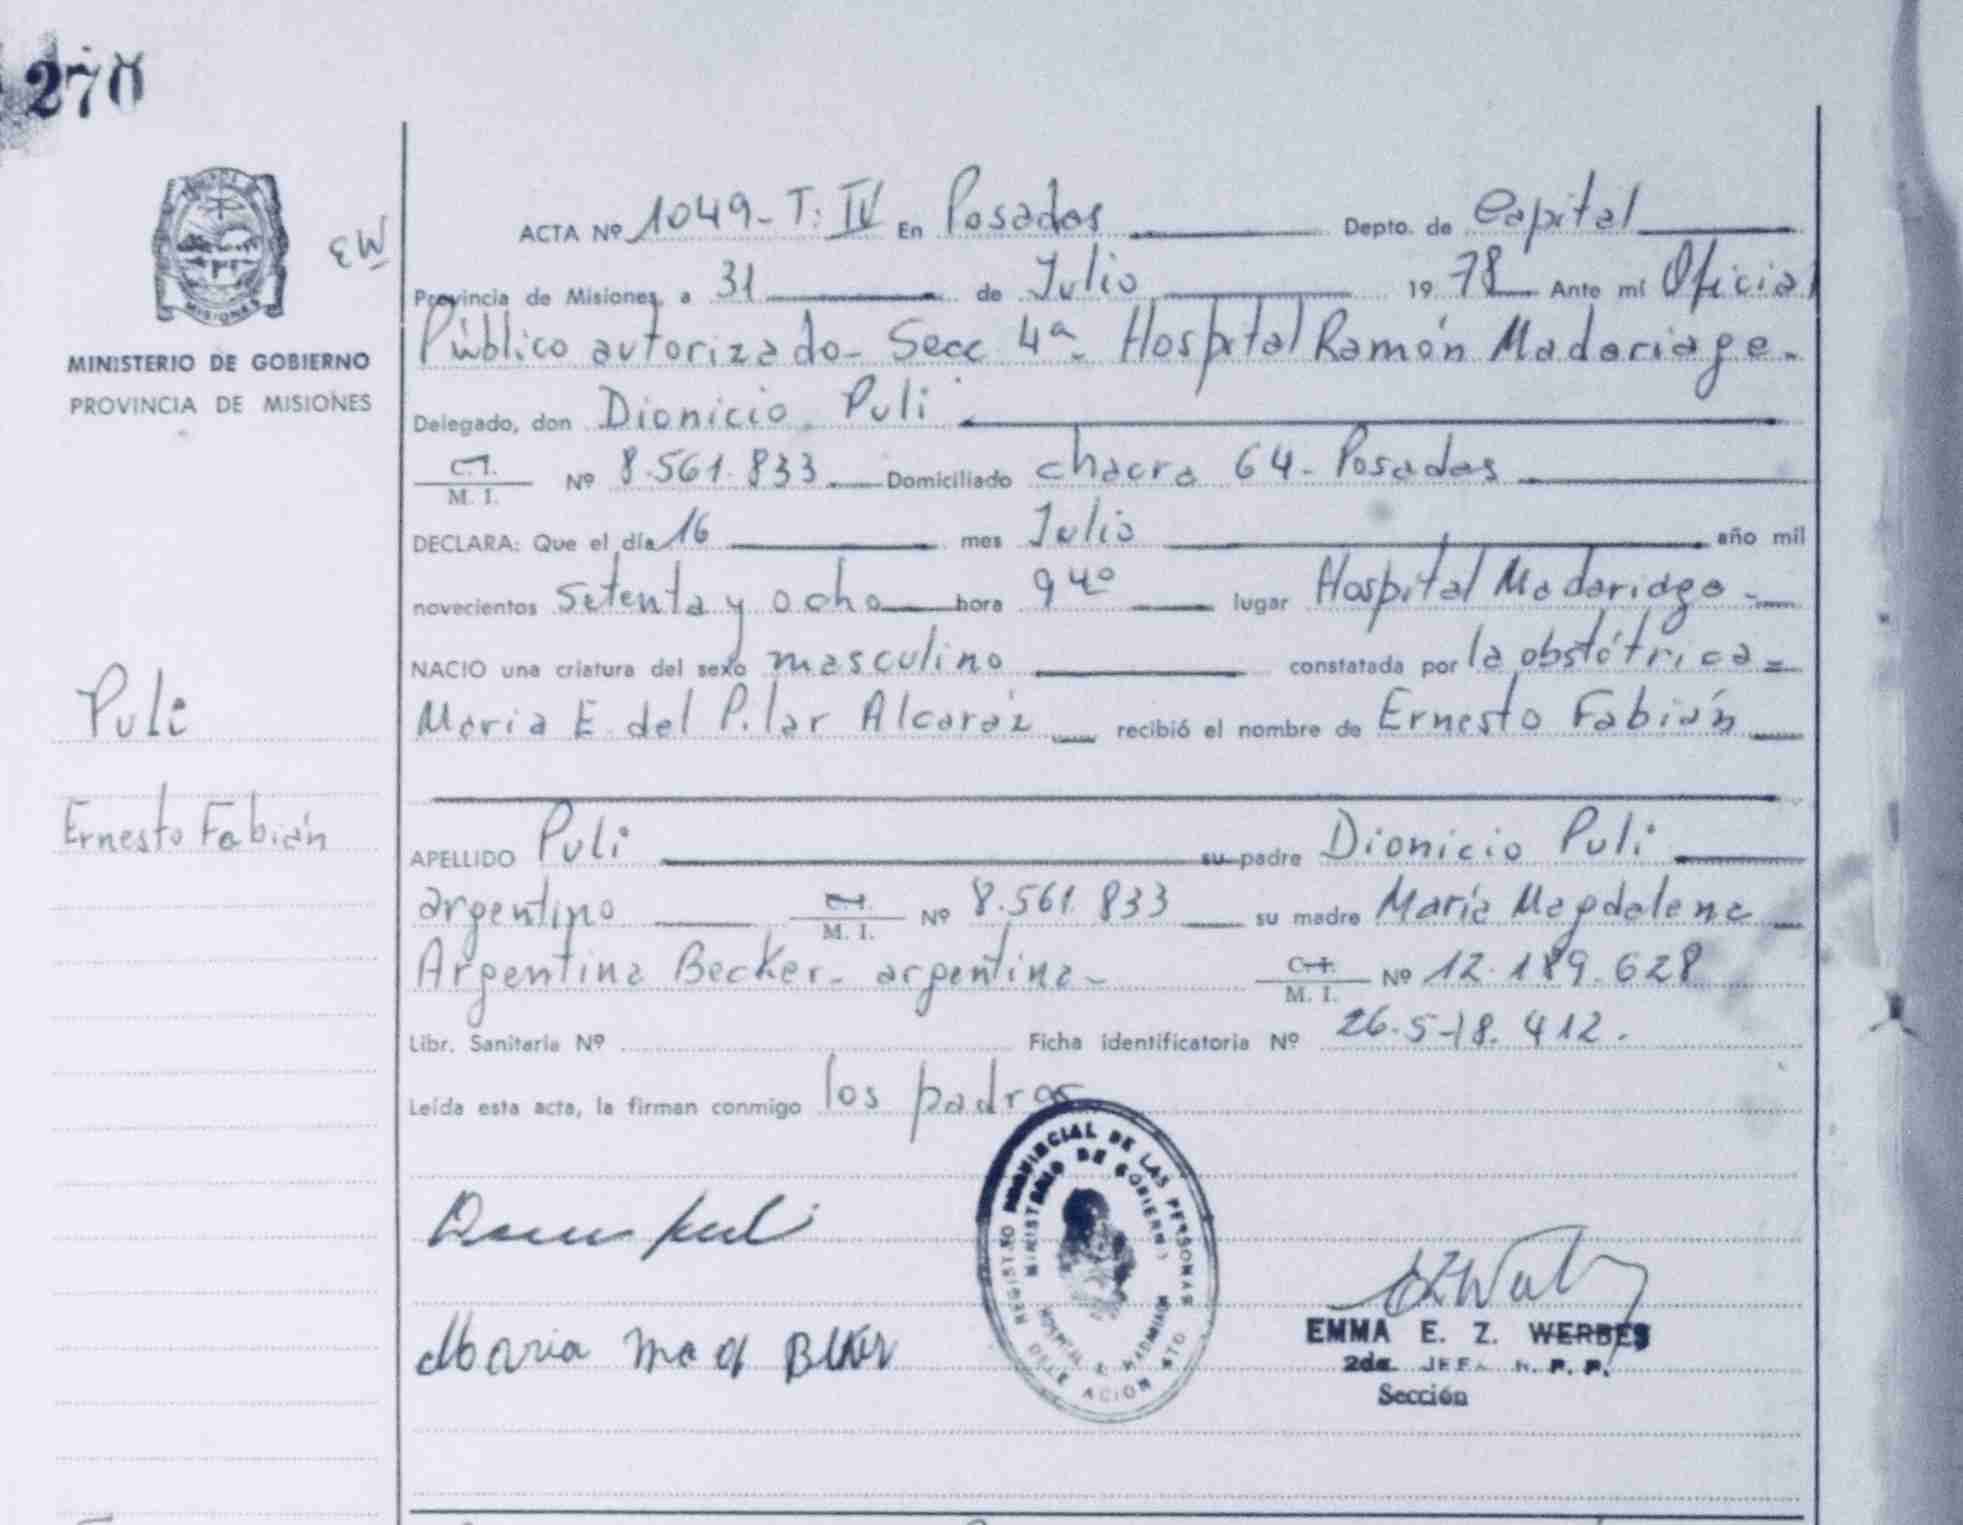 270
MISIONES
EW
MINISTERIO DE GOBIERNO
PROVINCIA DE MISIONES
ACTA Nº 1049-T: IV En Posadas Depto. de Capital
Provincia de Misiones, a 31 de Julio 1978 Ante mí Oficial
Público autorizado- Secc 4ª- Hospital Ramón Madariaga-
Delegado, don Dionicio Puli
C.I. M. I. Nº 8.561.833 Domiciliado chacra 64- Posadas
DECLARA: Que el día 16 mes Julio año mil
novecientos setenta y ocho hora 9 40 lugar Hospital Madariaga-
NACIO una criatura del sexo masculino constatada por la obstétrica=
María E. del Pilar Alcaráz recibió el nombre de Ernesto Fabián
Puli
Ernesto Fabián
APELLIDO Puli su padre Dionicio Puli
argentino C.I. M. I. Nº 8.561.833 su madre María Magdalena
Argentina Becker- argentina- C.I. M. I. Nº 12.189.628
Libr. Sanitaria Nº Ficha identificatoria Nº 26.578.412.
Leída esta acta, la firman conmigo los padres
REGISTRO PROVINCIAL DE LAS PERSONAS
MINISTERIO DE GOBIERNO
HOSPITAL R. MADARIAGA
Maria Mag Beker
EMMA E. Z. WERBES
2da. JEFA R. P. P.
Sección